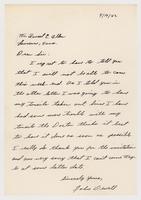 Dear Sir:
I regret to have to tell you
that I will not be able to come
this week end. As I told you in
the other letter I was going to have
my tonsils taken out. Since I have
had some trouble with my
tonsils the Doctor thinks it best
to have it done as soon as possible
I really do thank you for the invitation
and am very sorry that I can't come. May
be at some later date.
Sincerely Yours,
John